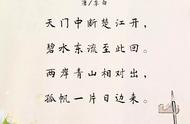 唐/李白
天门中断楚江开，
碧水东流至此回。
两岸青山相对出，
孤帆一片日边来。